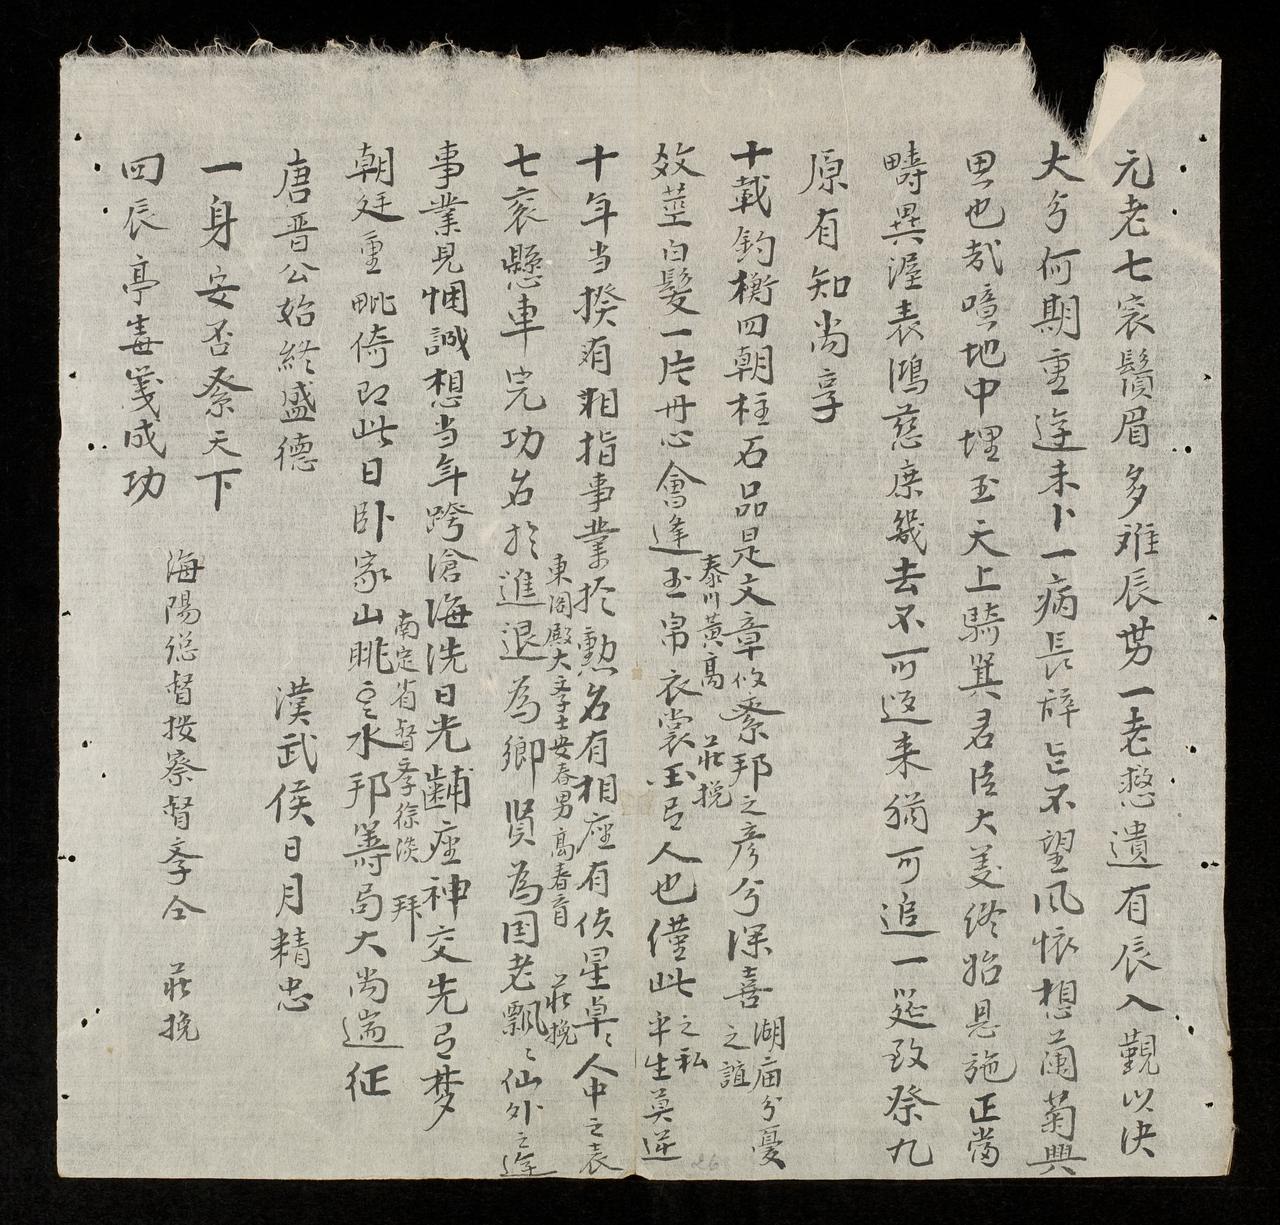 元老七裒鬚眉多难辰势一老憖遺有辰入覲以决
大兮何期重逢未卜一病長辞能不望风懷想蘭菊興
思也哉噫地中埋玉天上騎箕君臣大義終始恩施正當
疇異渥表鴻慈庶幾去不可返来猶可追一筵致祭九
原有知尚享
十載鈞衡四朝柱石品是文章攸系邦之彦兮深喜湖庙分憂之誼
泰川黃高 莊挽
效莖白髮一片丹心會逢玉帛衣裳玉色人也僅此之私半生莫逆
十年当揆有相指事業於勲名有相座有侯星卓〻人中之表
東阁殿大李士安春男高春育 莊挽
七裒懸車完功名於進退為鄉贤為国老飄〻仙外之逢
事業見悃誠想当年跨滄海洗日光黼座神交先召梦
南定省督李徐淡 拜
朝廷重毗倚即此日卧家山眺之水邦籌局大尚遄征
唐晋公始終盛德 漢武侯日月精忠
一身安否系天下
四辰亭毒笺成功
海陽総督按察督李仝 莊挽